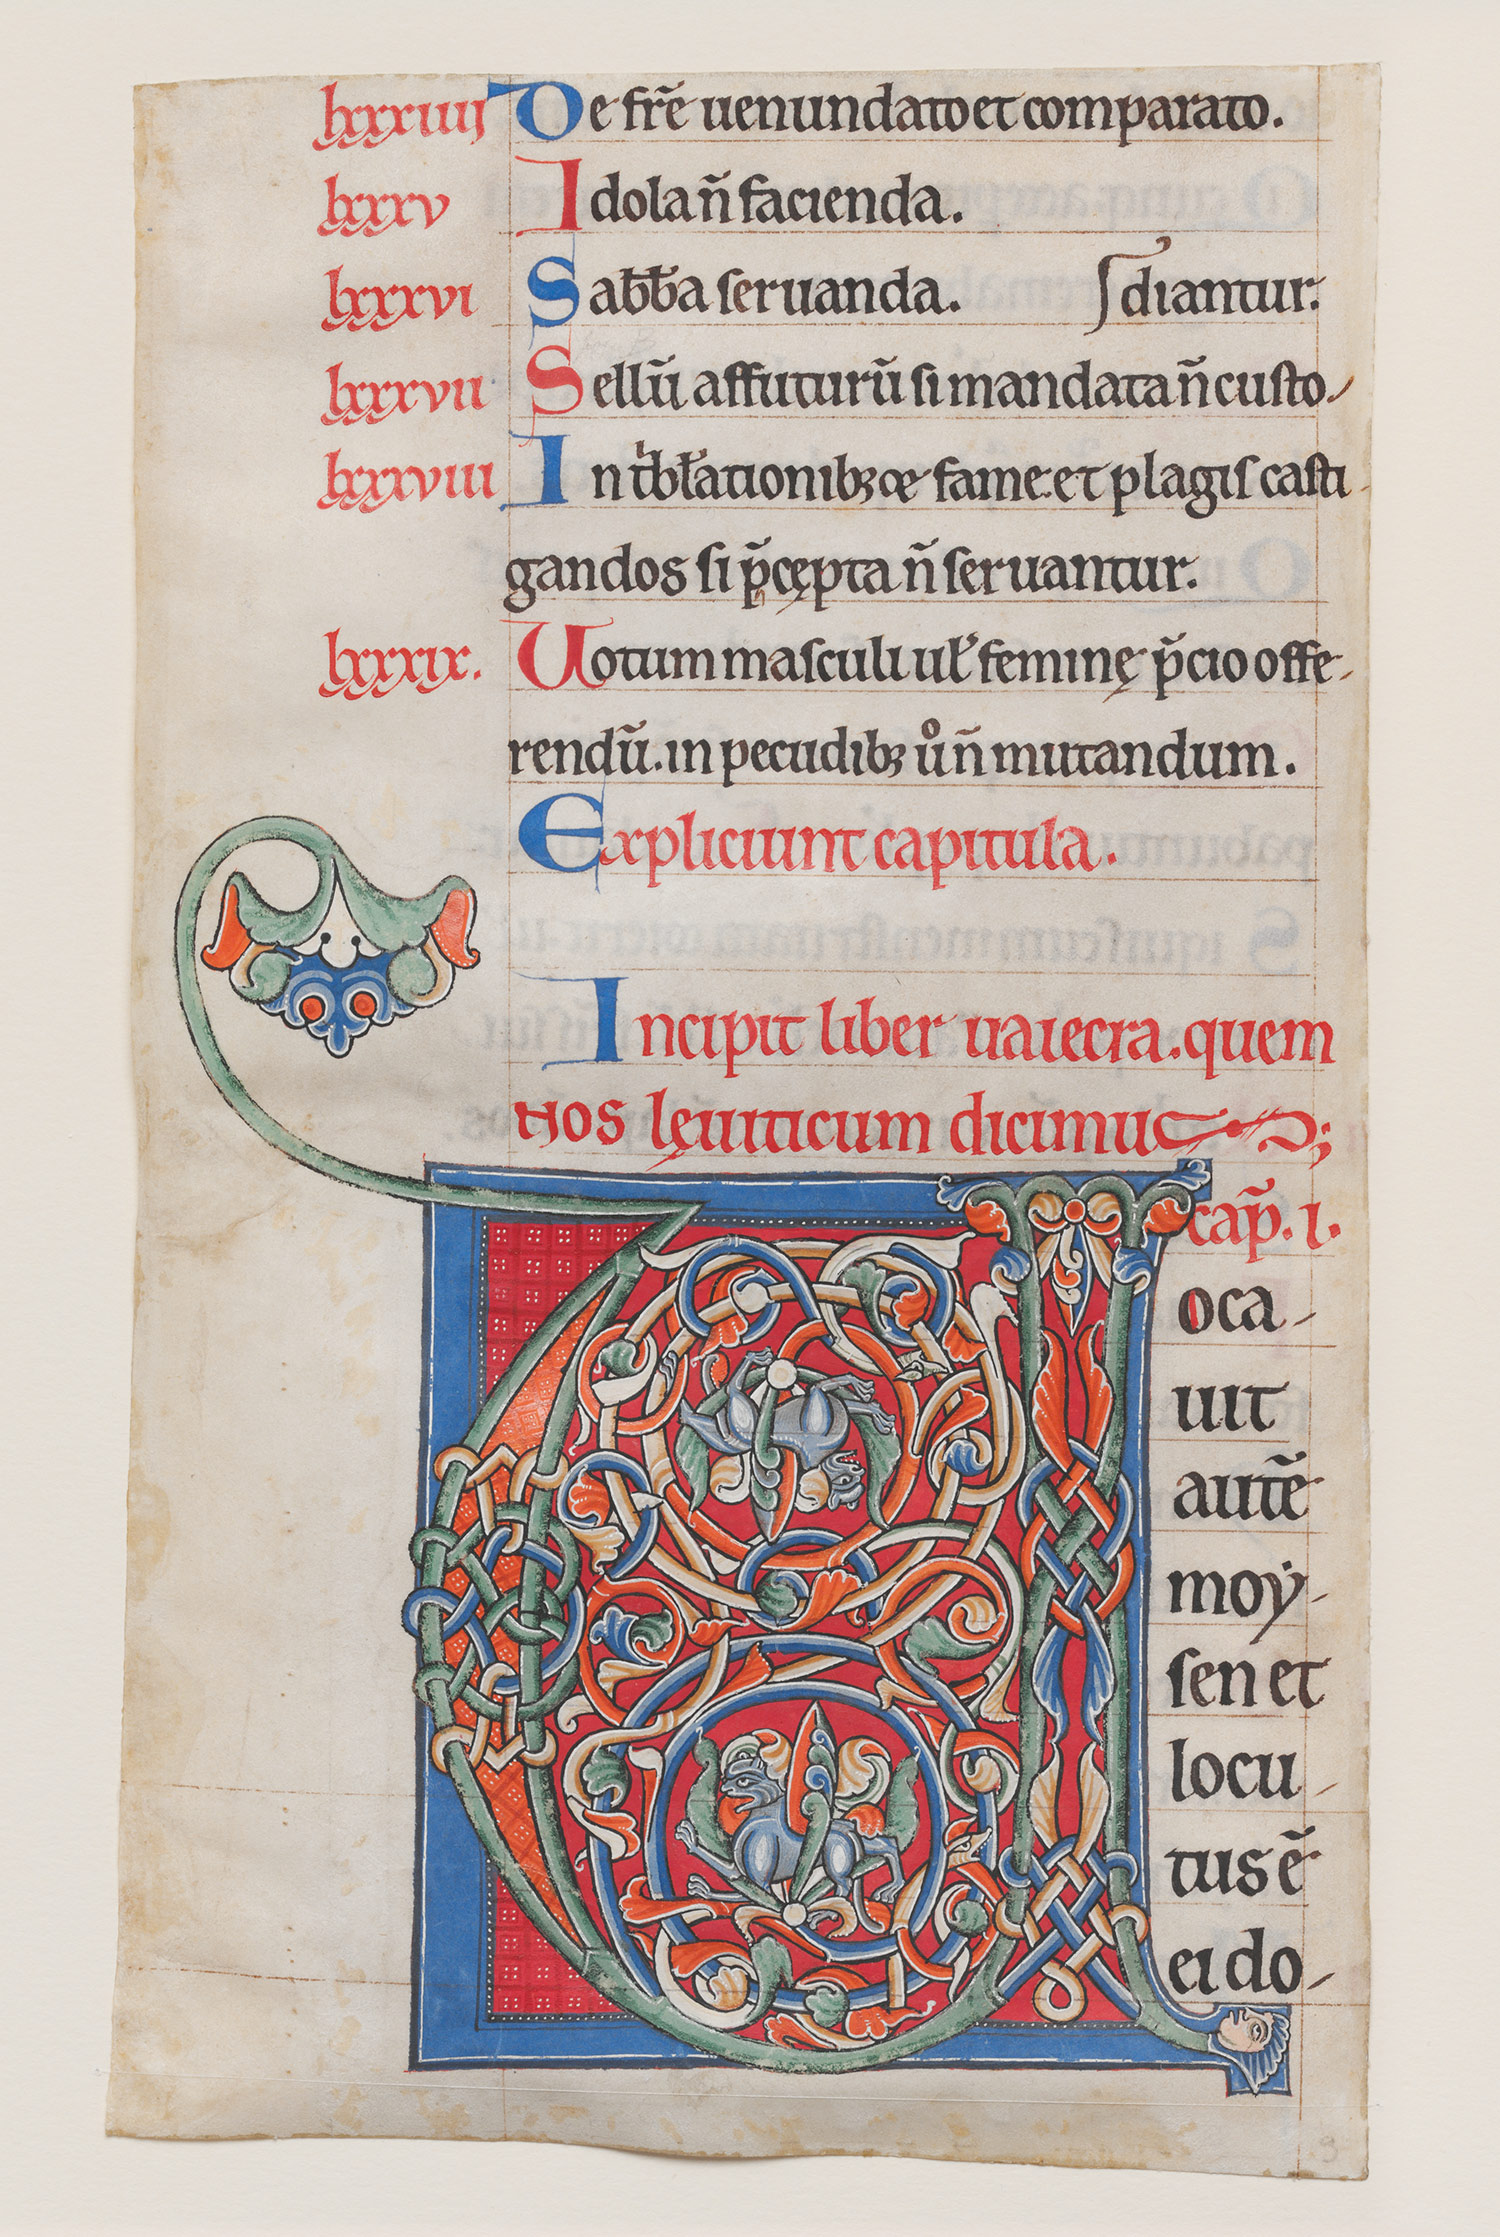 lxxxiiij De fr̄e uenundato et comparato.
lxxxv Idola n̄ facienda.
lxxxvi Sab̄b̄a seruanda. diantur.
lxxxvii Sellū affuturū si mandata n̄ custo-
lxxxviii In t̾bł̓ationib; & fame. et plagis casti
gandos si p̄cępta n̄ seruantur.
lxxxix. Uotum masculi uł feminę p̄cio offe-
rendū. in pecudib; ůn̄ mutandum.
Expliciunt capitula.
Incipit liber uaiecra. quem
nos lęuiticum dicimus;
cap̄. i.
Uoca-
uit
autē
moẏ-
sen et
locu-
tus ē
ei do-